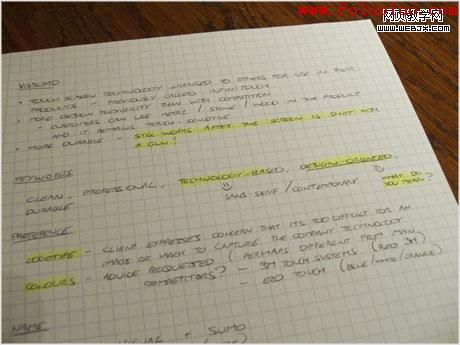 网页教学网
www.WebJX.com
VISSUMO
• TOUCH SCREEN TECHNOLOGY LICENSED TO OTHERS FOR USE IN THEIR
PRODUCTS - PREVIOUSLY CALLED INFINITOUCH.
• MORE DESIGN FLEXIBILITY THAN WITH COMPETITION
- CUSTOMERS CAN USE METAL / STONE / WOOD IN THE PRODUCT
AND IT REMAINS TOUCH-SENSITIVE
• MORE DURABLE - STILL WORKS AFTER THE SCREEN IS SHOT WITH
A GUN!
KEYWORDS
CLEAN, PROFESSIONAL, TECHNOLOGY-BASED, DESIGN-ORIENTED,
DURABLE
SANS-SERIF / CONTEMPORARY
WHAT DO
YOU MEAN?
PREFERENCE
LOGOTYPE - CLIENT EXPRESSES CONCERN THAT ITS TOO DIFFICULT FOR AN
IMAGE OR MARK TO CAPTURE THE COMPANY TECHNOLOGY
COLOURS - ADVICE REQUESTED (PERHAPS DIFFERENT FROM MAIN
COMPETITORS? - 3M TOUCH SYSTEMS (RED 3M)
- ELO TOUCH (BLUE/WHITE/ORANGE)
NAME
VISUAL + SUMO